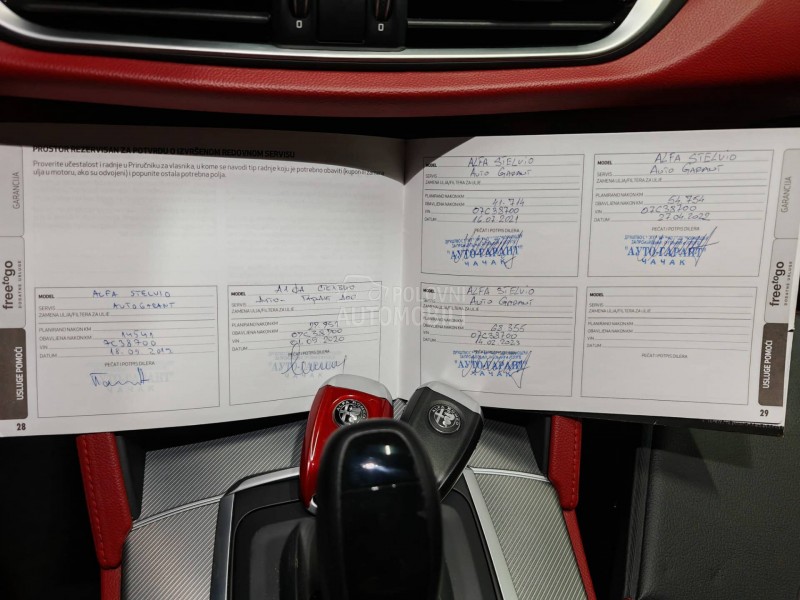 PROSTOR REZERVISAN ZA POTVRDU O IZVRŠENOM REDOVNOM SERVISU
Proverite učestalost i radnje u Priručniku za vlasnika, u kome se navodi tip radnje koju je potrebno obaviti (kupon
ulja u motoru, ako su odvojeni) i popunite ostala potrebna polja.
GARANCIJA
freetogo
USLUGE POMOĆI
28
MODEL ALFA STELVIO
SERVIS AUTO GARANT
ZAMENA ULJA/FILTERA ZA ULJE
PLANIRANO NAKON KM
OBAVLJENA NAKON KM 14541
VIN 7C38700
DATUM 18.09.2019
PEČAT I POTPIS DILERA
MODEL
SERVIS
ZAMENA ULJA/FILTERA ZA ULJE
PLANIRANO NAKON KM
OBAVLJENA NAKON KM
VIN 07C38700
DATUM 01.09.2020
PEČAT I POTPIS DILERA
MODEL ALFA STELVIO
SERVIS AUTO GARANT
ZAMENA ULJA/FILTERA ZA ULJE
PLANIRANO NAKON KM
OBAVLJENA NAKON KM 41.714
VIN 07C38700
DATUM 16.07.2021
PEČAT I POTPIS DILERA
"АУТО-ГАРАНТ"
ЧАЧАК
MODEL ALFA STELVIO
SERVIS AUTO GARANT
ZAMENA ULJA/FILTERA ZA ULJE
PLANIRANO NAKON KM
OBAVLJENA NAKON KM 54.754
VIN 07C38700
DATUM 27.04.2022
PEČAT I POTPIS DILERA
"АУТО-ГАРАНТ"
ЧАЧАК
MODEL ALFA STELVIO
SERVIS AUTO GARANT
ZAMENA ULJA/FILTERA ZA ULJE
PLANIRANO NAKON KM
OBAVLJENA NAKON KM 68.355
VIN 07C38700
DATUM 14.02.2023
PEČAT I POTPIS DILERA
"АУТО-ГАРАНТ"
ЧАЧАК
MODEL
SERVIS
ZAMENA ULJA/FILTERA ZA ULJE
PLANIRANO NAKON KM
OBAVLJENA NAKON KM
VIN
DATUM
PEČAT I POTPIS DILERA
GARANCIJA
freetogo
USLUGE POMOĆI
29
POLOVNI
AUTOMOBILI